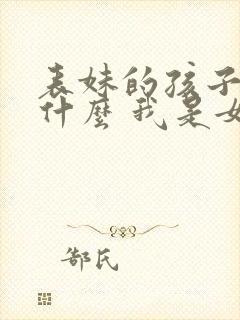 表妹的孩子
什麼我是女
郜氏